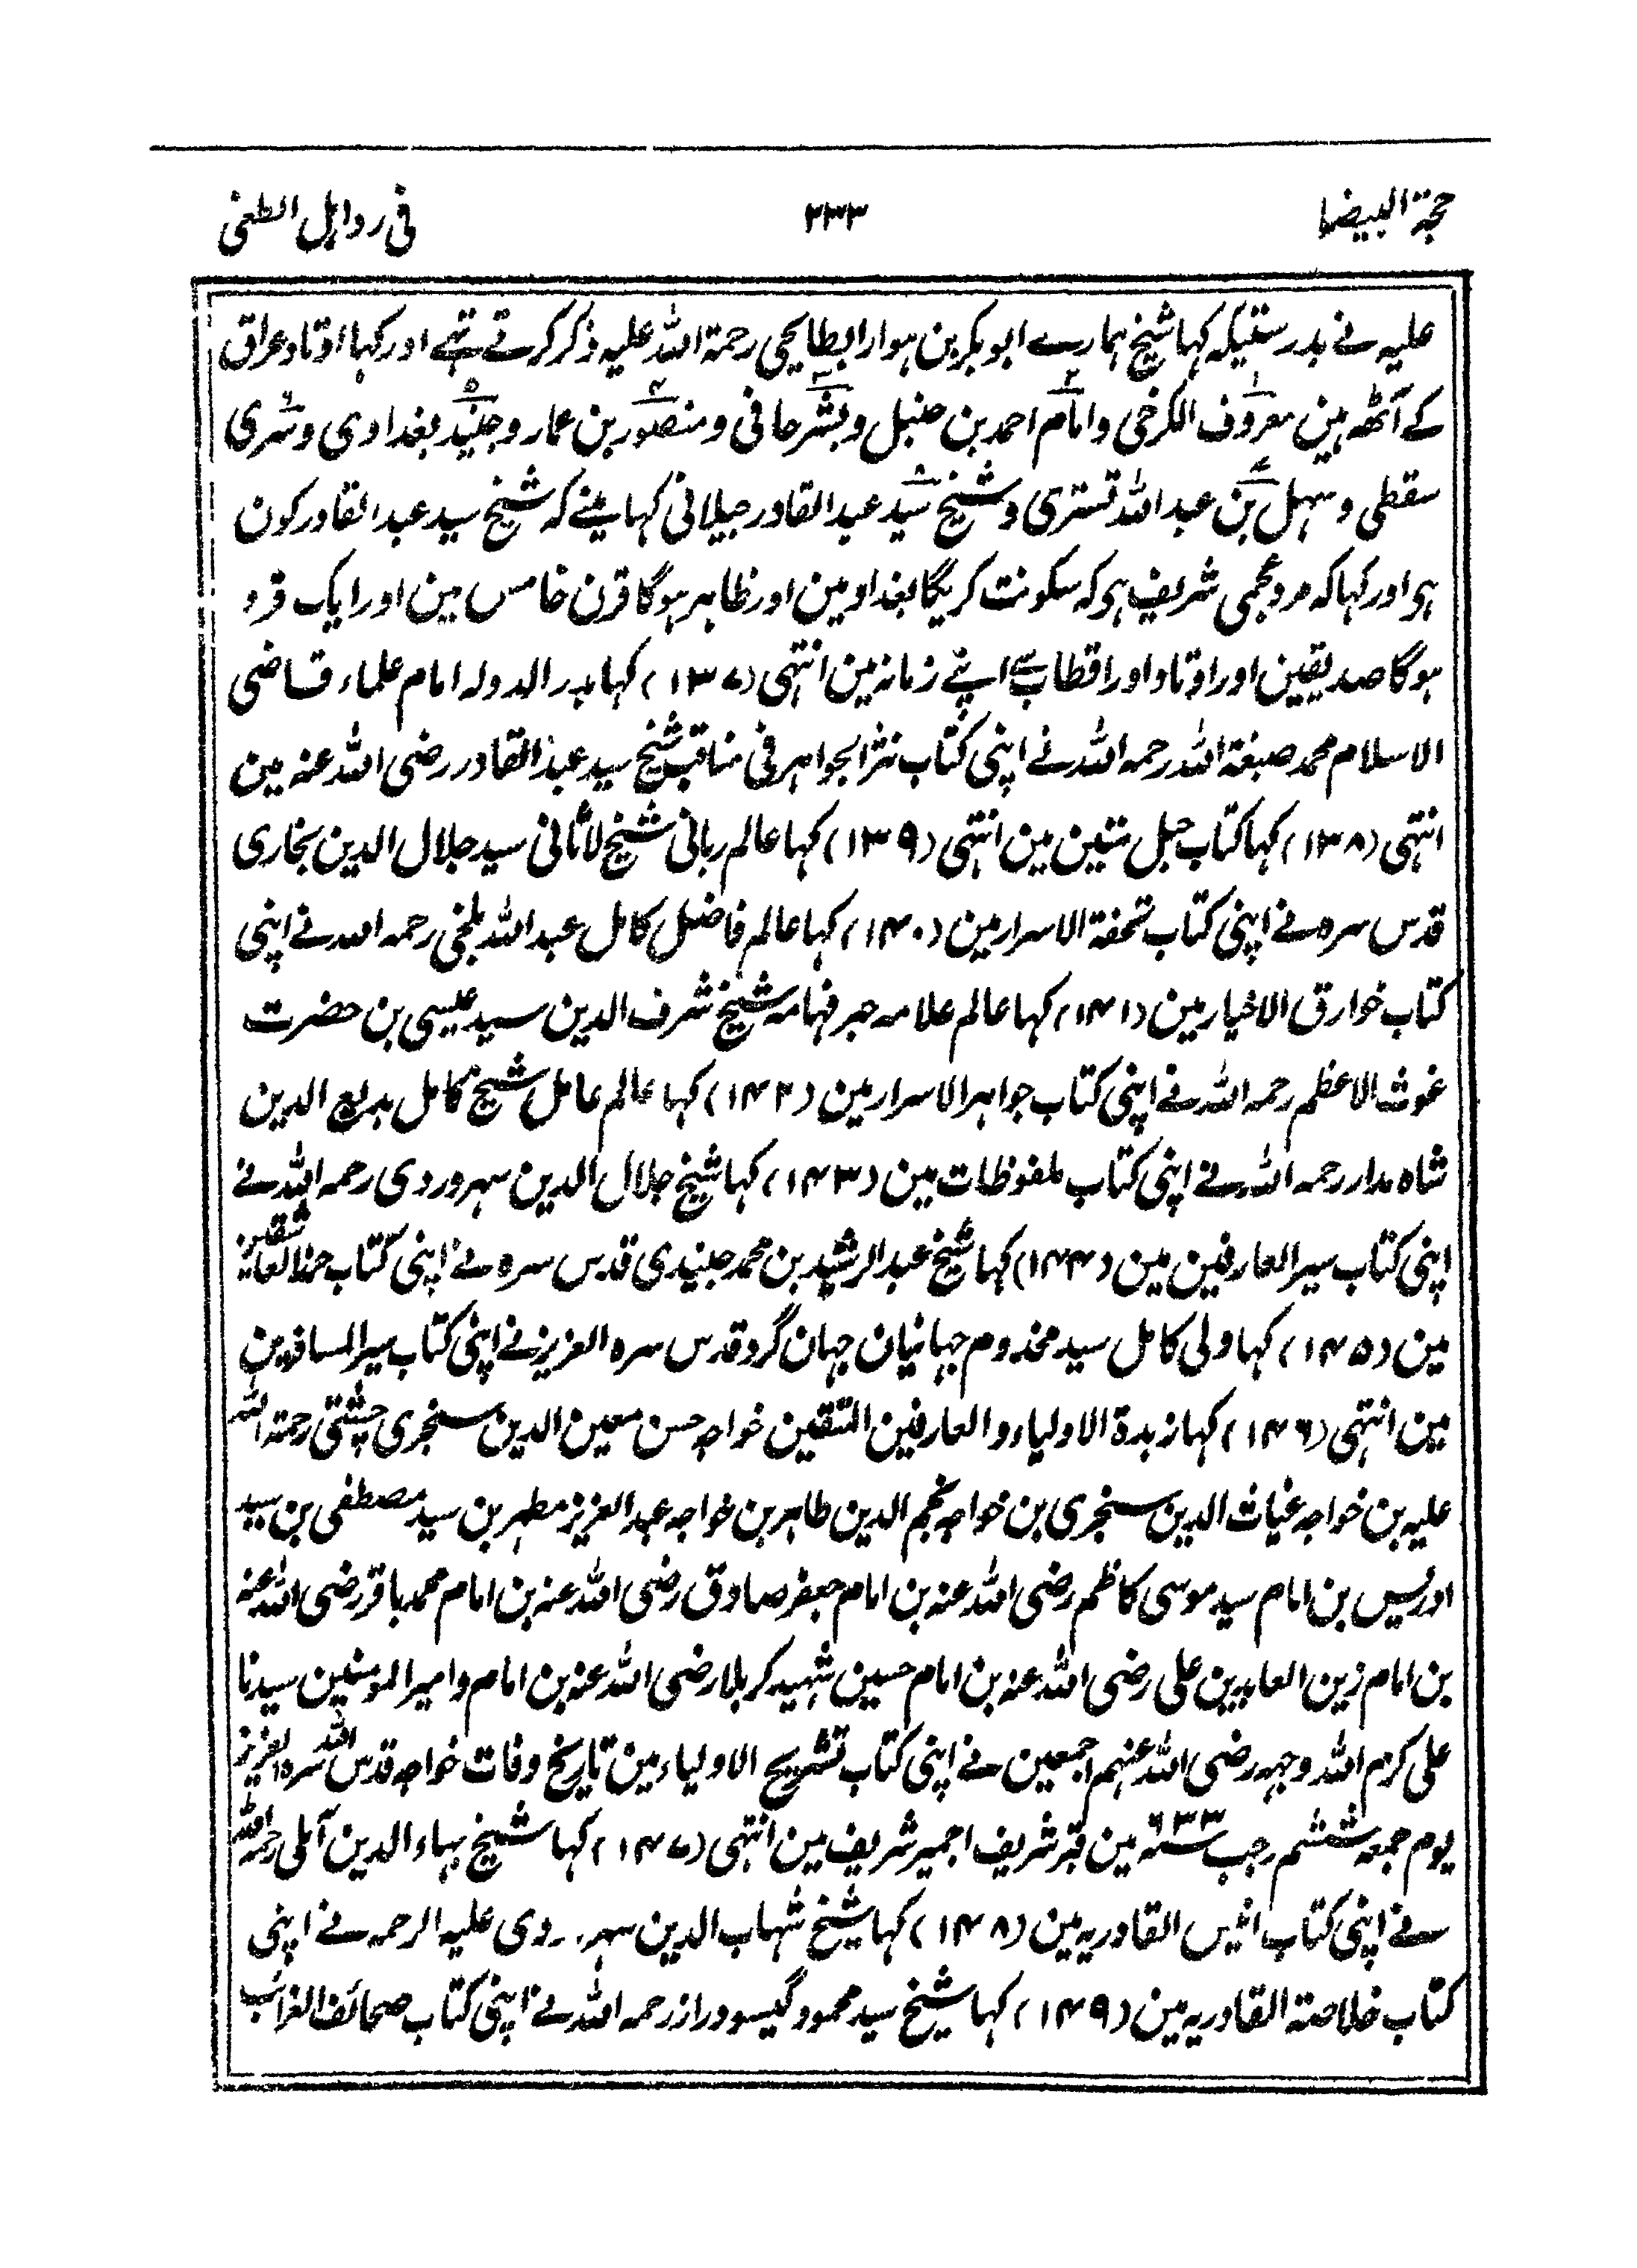 حجۃ البیضا ۲۳۳ فی ردابل الطغی
علیہ نے بدرستیکہ کہا شیخ ہمارے ابوبکر بن ہوار ابطایحی رحمۃ اللہ علیہ ذکر کرتے تہے اور کہا اوتاد عراق
کے آٹھہ ہین معروف الکرخی و امام احمد بن حنبل و بشر حافی و منصور بن عمار و جنید بغدادی و سری
سقطی و سہل بن عبد اللہ تستری و شیخ سید عبد القادر جیلانی کہا مینے کہ شیخ سید عبد القادر کون
ہی اور کہا کہ مرد عجمی شریف ہی کہ سکونت کریگا بغداد مین اور ظاہر ہوگا قرن خامس مین اور ایک فرد
ہوگا صدیقین اور اوتاد اور اقطاب سے اپنے زمانہ مین انتہی (۱۳۷) کہا بدر الدولہ امام علماء قاضی
الاسلام محمد صبغۃ اللہ رحمہ اللہ نے اپنی کتاب نثر الجواہر فی مناقب شیخ سید عبد القادر رضی اللہ عنہ مین
انتہی (۱۳۸) کہا کتاب حبل متین مین انتہی (۱۳۹) کہا عالم ربانی شیخ لاثانی سید جلال الدین بخاری
قدس سرہ نے اپنی کتاب تحفۃ الاسرار مین (۱۴۰) کہا عالم فاضل کامل عبد اللہ بلخی رحمہ اللہ نے اپنی
کتاب خوارق الاخیار مین (۱۴۱) کہا عالم علامہ حبر فہامہ شیخ شرف الدین سید عیسی بن حضرت
غوث الاعظم رحمہ اللہ نے اپنی کتاب جواہر الاسرار مین (۱۴۲) کہا عالم عامل شیخ کامل بدیع الدین
شاہ مدار رحمہ اللہ نے اپنی کتاب ملفوظات مین (۱۴۳) کہا شیخ جلال الدین سہروردی رحمہ اللہ نے
اپنی کتاب سیر العارفین مین (۱۴۴) کہا شیخ عبد الرشید بن محمد جنیدی قدس سرہ نے اپنی کتاب العاشقین
مین (۱۴۵) کہا ولی کامل سید مخدوم جہانیان جہان گرد قدس سرہ العزیز نے اپنی کتاب سیر المسافرین
مین انتہی (۱۴۶) کہا زبدۃ الاولیاء و العارفین المتقین خواجہ حسن معین الدین سنجری چشتی رحمۃ اللہ
علیہ بن خواجہ غیاث الدین سنجری بن خواجہ نجم الدین طاہر بن خواجہ عبد العزیز مطہر بن سید مصطفی بن سید
ادریس بن امام سید موسی کاظم رضی اللہ عنہ بن امام جعفر صادق رضی اللہ عنہ بن امام محمد باقر رضی اللہ عنہ
بن امام زین العابدین علی رضی اللہ عنہ بن امام حسین شہید کربلا رضی اللہ عنہ بن امام و امیر المومنین سیدنا
علی کرم اللہ وجہہ رضی اللہ عنہم اجمعین نے اپنی کتاب تشریح الاولیاء مین تاریخ وفات خواجہ قدس اللہ سرہ العزیز
یوم جمعہ ششم رجب ۶۳۳ مین قبر شریف اجمیر شریف مین انتہی (۱۴۷) کہا شیخ بہاء الدین آملی رحمہ اللہ
نے اپنی کتاب انیس القادریہ مین (۱۴۸) کہا شیخ شہاب الدین سہروردی علیہ الرحمہ نے اپنی
کتاب خلاصۃ القادریہ مین (۱۴۹) کہا شیخ سید محمود گیسودراز رحمہ اللہ نے اپنی کتاب صحائف الغرائب